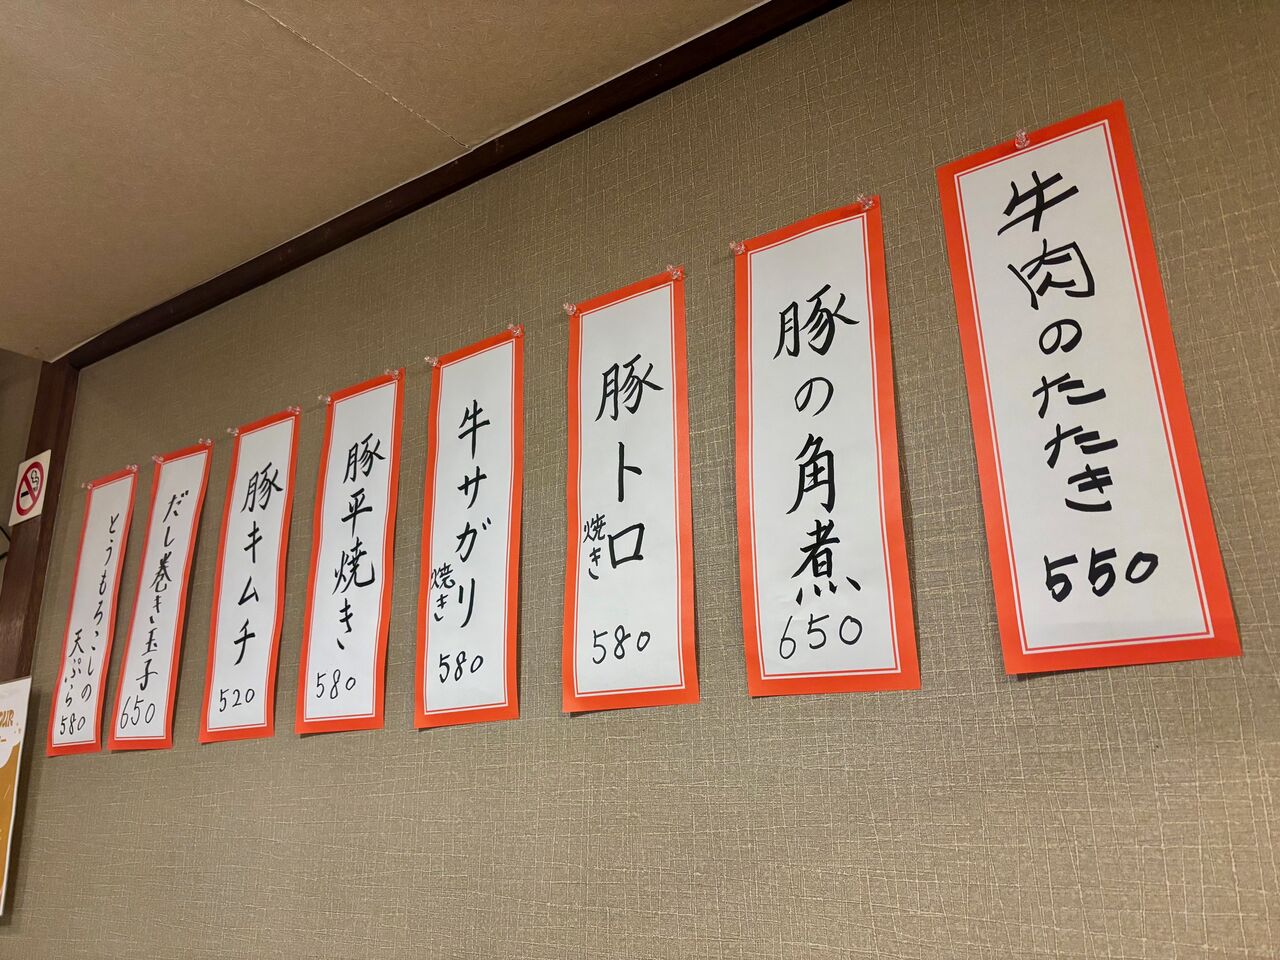 牛肉のたたき
550
豚の角煮
650
豚トロ
焼き
580
牛サガリ
焼き
580
豚平焼き
580
豚キムチ
520
だし巻き玉子
650
とうもろこしの
天ぷら
580